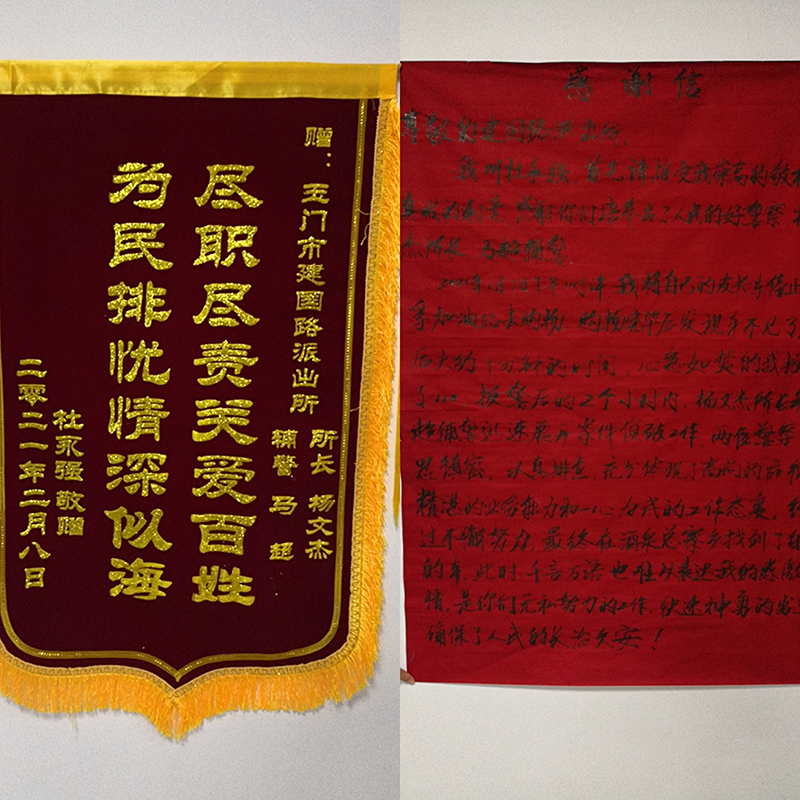 赠：玉门市建国路派出所
所长 杨文杰
辅警 马超
尽职尽责关爱百姓
为民排忧情深似海
杜永强敬赠
二零二一年二月八日
感谢信
尊敬的建国路派出所
我叫杜永强，首先请接受我崇高的敬
真诚的 你们培养出了人民的好警察
杰所长 马超辅警
我将自己的 车停
加油站去购物，购物完毕后发现车不见了
后大约十分钟的时间，心急如焚的我
了110 报警后的2个小时内，杨文杰所长
超辅警迅速展开案件侦破工作，两位警察
思缜密，认真排查，充分体现了高尚的品
精湛的业务能力和一心为民的工作态度，
过不懈努力，最终在酒泉总寨乡找到了
的车，此时千言万语也难以表达我的感激
情，是你们无私努力的工作，快速神勇的
确保了人民的长治久安！